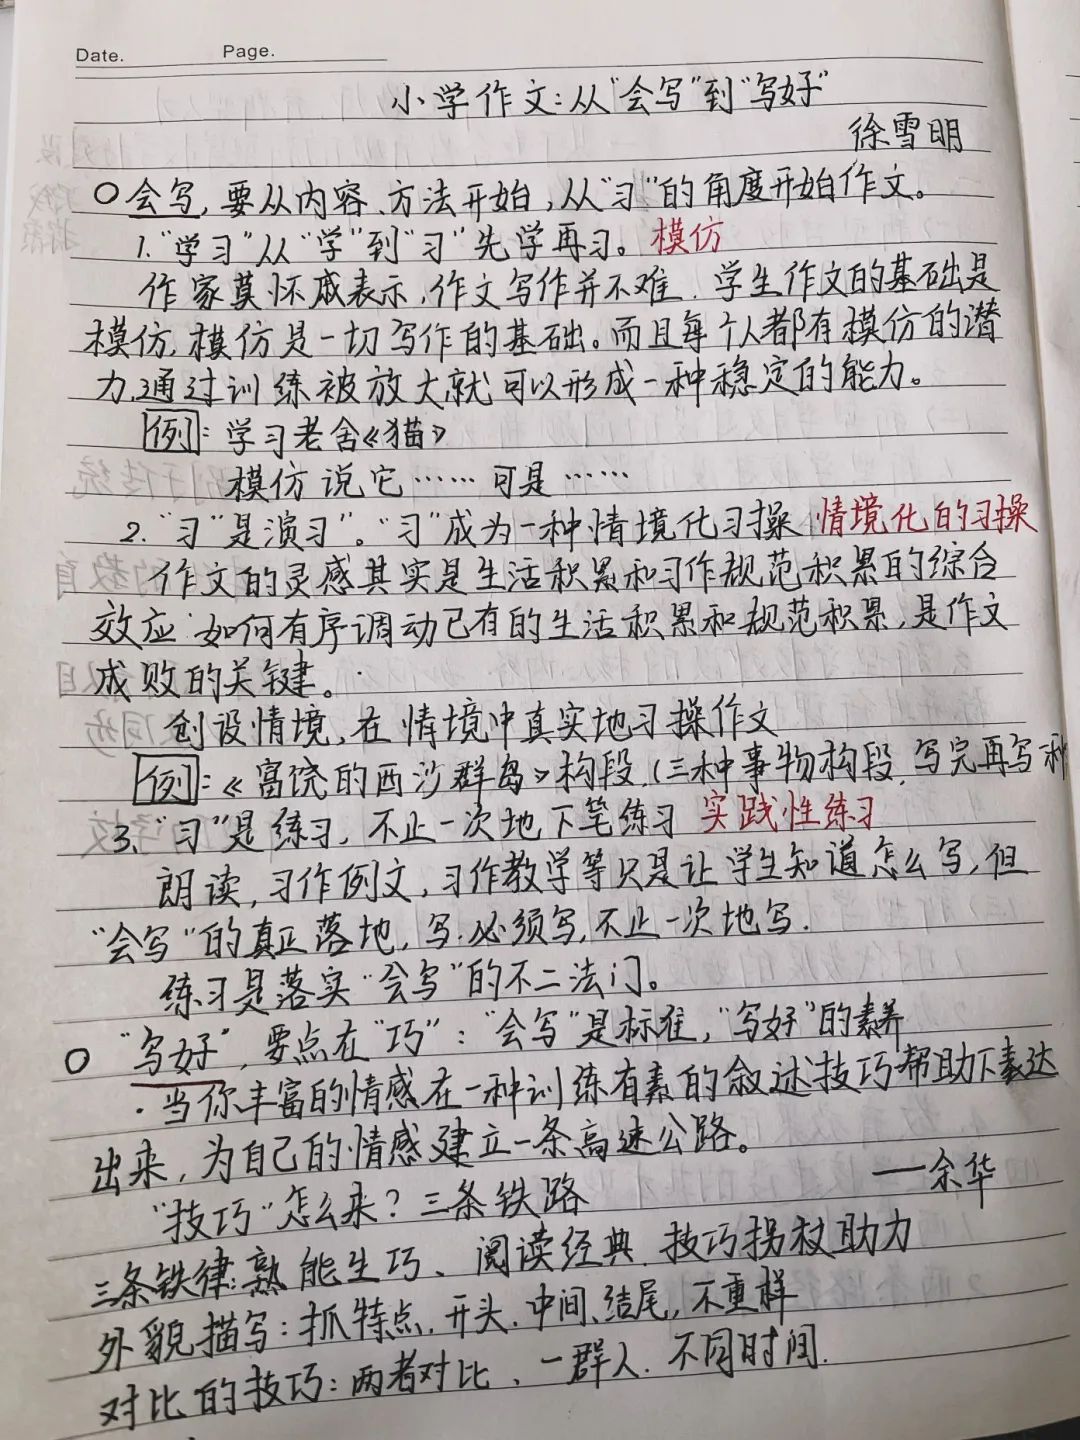 Date.
Page.
小学作文:从"会写"到"写好"
徐雪明
○会写,要从内容、方法开始,从"习"的角度开始作文。
1."学习"从"学"到"习"先学再习。模仿
作家莫怀戚表示,作文写作并不难.学生作文的基础是
模仿,模仿是一切写作的基础。而且每个人都有模仿的潜
力,通过训练被放大就可以形成一种稳定的能力。
例:学习老舍《猫》
模仿说它……可是……
2."习"是演习"。"习"成为一种情境化习操 情境化的习操
作文的灵感其实是生活积累和习作规范积累的综合
效应.如何有序调动已有的生活积累和规范积累,是作文
成败的关键。
创设情境,在情境中真实地习操作文
例:《富饶的西沙群岛》构段.(三种事物构段,写完再写
3."习"是练习,不止一次地下笔练习 实践性练习
朗读,习作例文,习作教学等只是让学生知道怎么写,但
"会写"的真正落地,写.必须写,不止一次地写.
练习是落实"会写"的不二法门。
○"写好",要点在"巧":"会写"是标准,"写好"的素养
·当你丰富的情感在一种训练有素的叙述技巧帮助下表达
出来,为自己的情感建立一条高速公路。
——余华
"技巧"怎么来?三条铁路
三条铁律:熟能生巧、阅读经典.技巧拐杖助力
外貌描写:抓特点.开头.中间、结尾,不重样
对比的技巧:两者对比、一群人.不同时间.